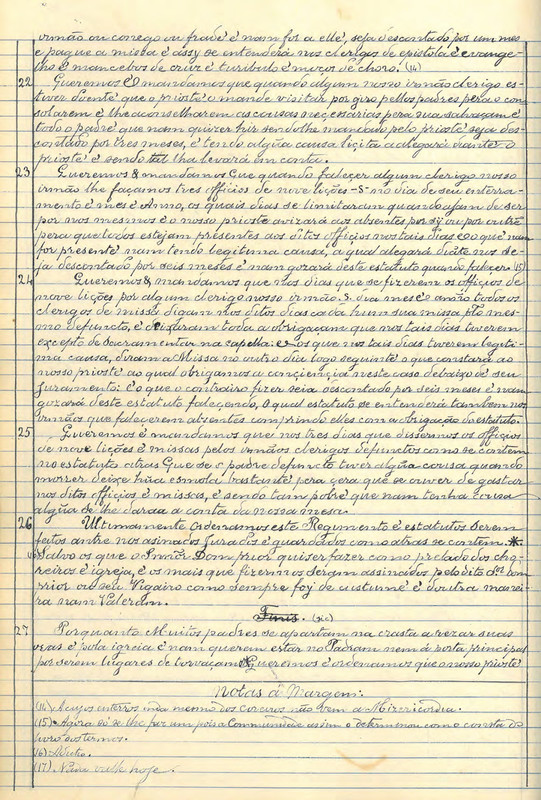 irmão ou conego ou frade e nam for a elle, seja descontado por um mes
e pague a missa é assy se entenderá nos clerigos de epistola é evange-
lho é mancebos de cruz é turibulo é moços de choro. (14)
22 Queremos & mandamos que quando algum nosso irmão clerigo es-
tiver doente que o prioste o mande visitar por giro pellos padres pera o con-
solarem é lhe aconselharem as cousas necessarias pera sua salvaçam é
todo o padre que nam quizer hir sendolhe mandado pelo prioste seja des-
contado por tres meses, é tendo algũa causa liçita a alegará diante o
prioste é sendo tal lha levará em conta.
23 Queremos & mandamos que quando faleçer algum clerigo nosso
irmão lhe façamos tres officios de nove lições -S- no dia de seu enterra-
mento é mes é Anno, os quais dias se limitaram quando ajam de ser
por nos mesmos é o nosso prioste avizará aos absentes por sỹ ou por outrẽ
pera que todos estejam presentes aos ditos offiçios nos tais dias é o que nam
for presente nam tendo legitima causa, a qual alegará diãte nos se-
ja descontado por seis meses é nam gozará deste estatuto quando faleçer (15)
24 Queremos & mandamos que nos dias que se fizerem os offiçios de
nove lições por algum clerigo nosso irmão. S. dia mes é anno todos os
clerigos de missa digam nos ditos dias cada hum sua missa plo mes-
mo defuncto, é deixaram toda a obrigaçam que nos tais dias tiverem
exçepto de Sacramentar na capella: é os que nos tais dias tiverem legiti-
ma causa, diram a Missa no outro dia logo seguinte o que constará ao
nosso prioste ao qual obrigamos a conçiençia neste caso debaixo de seu
juramento: é o que o contrairo fizer seia descontado por seis meses é nam
gozará deste estatuto faleçendo, o qual estatuto se entenderá tambem nos
irmãos que faleçerem absentes comprindo elles com a obrigação do estatuto.
25 Queremos é mandamos que nos tres dias que dissermos os offiçios
de nove lições é missas pelos irmãos clerigos defunctos como se contem
no estatuto atras Que se o padre defuncto tiver algũa cousa quando
morrer deixe hũa esmola bastante pera çera que se ouver de gastar
nos ditos offiçios é missas, é sendo tam pobre que nam tenha cousa
algũa se lhe daraa a conta da nossa mesa.
26 Ultimamente Ordenamos este Regimento é estatutos Serem
feitos antre nos asinados Jurados é guardados como atras se contem. *
Salvo os que o Snnõr Dom prior quiser fazer como prelado dos cho-
reiros é igreja, é os mais que fizermos Seram assinados pelo dito Sõr Dom
Prior ou seu Vigairo como sempre foy de custume é doutra manei-
ra nam Valerám.
Finis. (sic)
27 Porquanto Muitos padres se apartam na crasta a rezar suas
oras é pola igreia é nam querem estar no Padram nem á porta prinçipal
por serem lugares de torvaçam Queremos é ordenamos que o nosso prioste
Notas á Margem:
(14) A cujos enterros inda mesmo dos coreiros não vem a Misericordia.
(15) Agora só se lhe faz um pois a Communidade assim o determinou como consta do
livro dos termos.
(16) Aditio.
(17) Nada valle hoje.